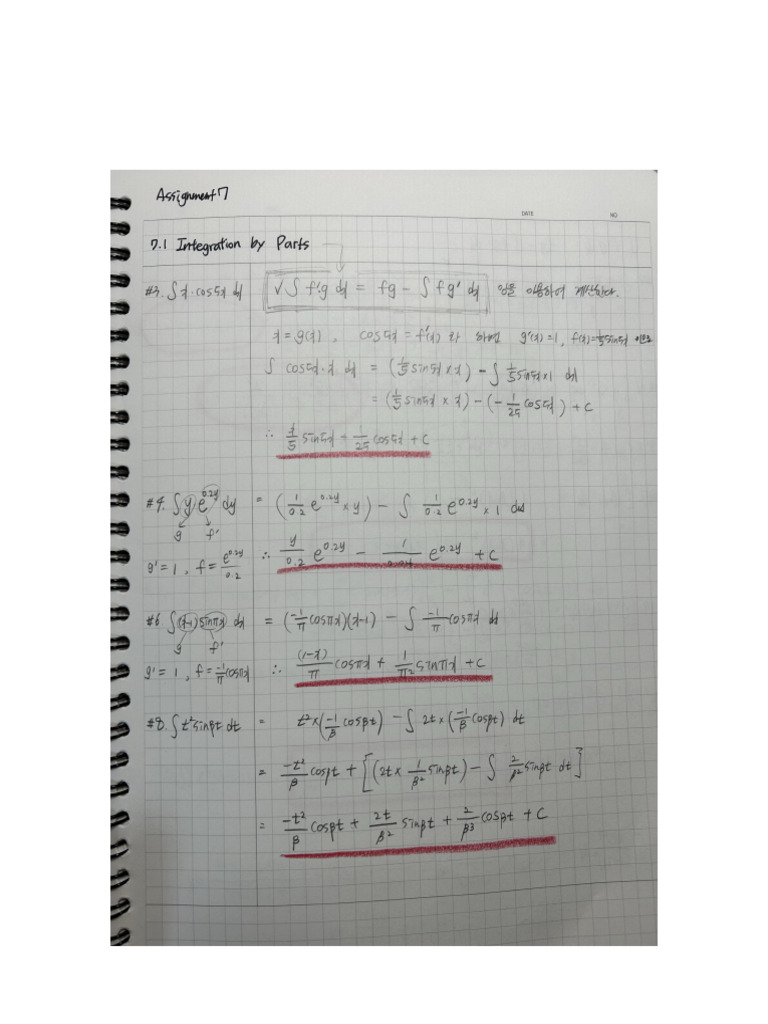 Assignment 7
DATE NO
7.1 Integration by Parts
#3. ∫x·cos5x dx √∫f'·g dx = fg - ∫fg' dx 임을 이용하여 계산한다.
x = g(x), cos5x = f'(x) 라 하면 g'(x)=1, f(x)=1/5 sin5x 이므로
∫cos5x·x dx = (1/5 sin5x × x) - ∫1/5 sin5x × 1 dx
= (1/5 sin5x × x) - (-1/25 cos5x) + C
∴ x/5 sin5x + 1/25 cos5x + C
#4. ∫y e^0.2y dy = (1/0.2 e^0.2y × y) - ∫ 1/0.2 e^0.2y × 1 dy
g f'
g' = 1, f = e^0.2y/0.2 ∴ y/0.2 e^0.2y - 1/0.04 e^0.2y + C
#6 ∫(x-1)sinπx dx = (-1/π cosπx)(x-1) - ∫ -1/π cosπx dx
g f'
g' = 1, f = -1/π cosπx ∴ (1-x)/π cosπx + 1/π² sinπx + C
#8. ∫t² sinβt dt = t² × (-1/β cosβt) - ∫2t × (-1/β cosβt) dt
= -t²/β cosβt + [(2t × 1/β² sinβt) - ∫ 2/β² sinβt dt]
= -t²/β cosβt + 2t/β² sinβt + 2/β³ cosβt + C